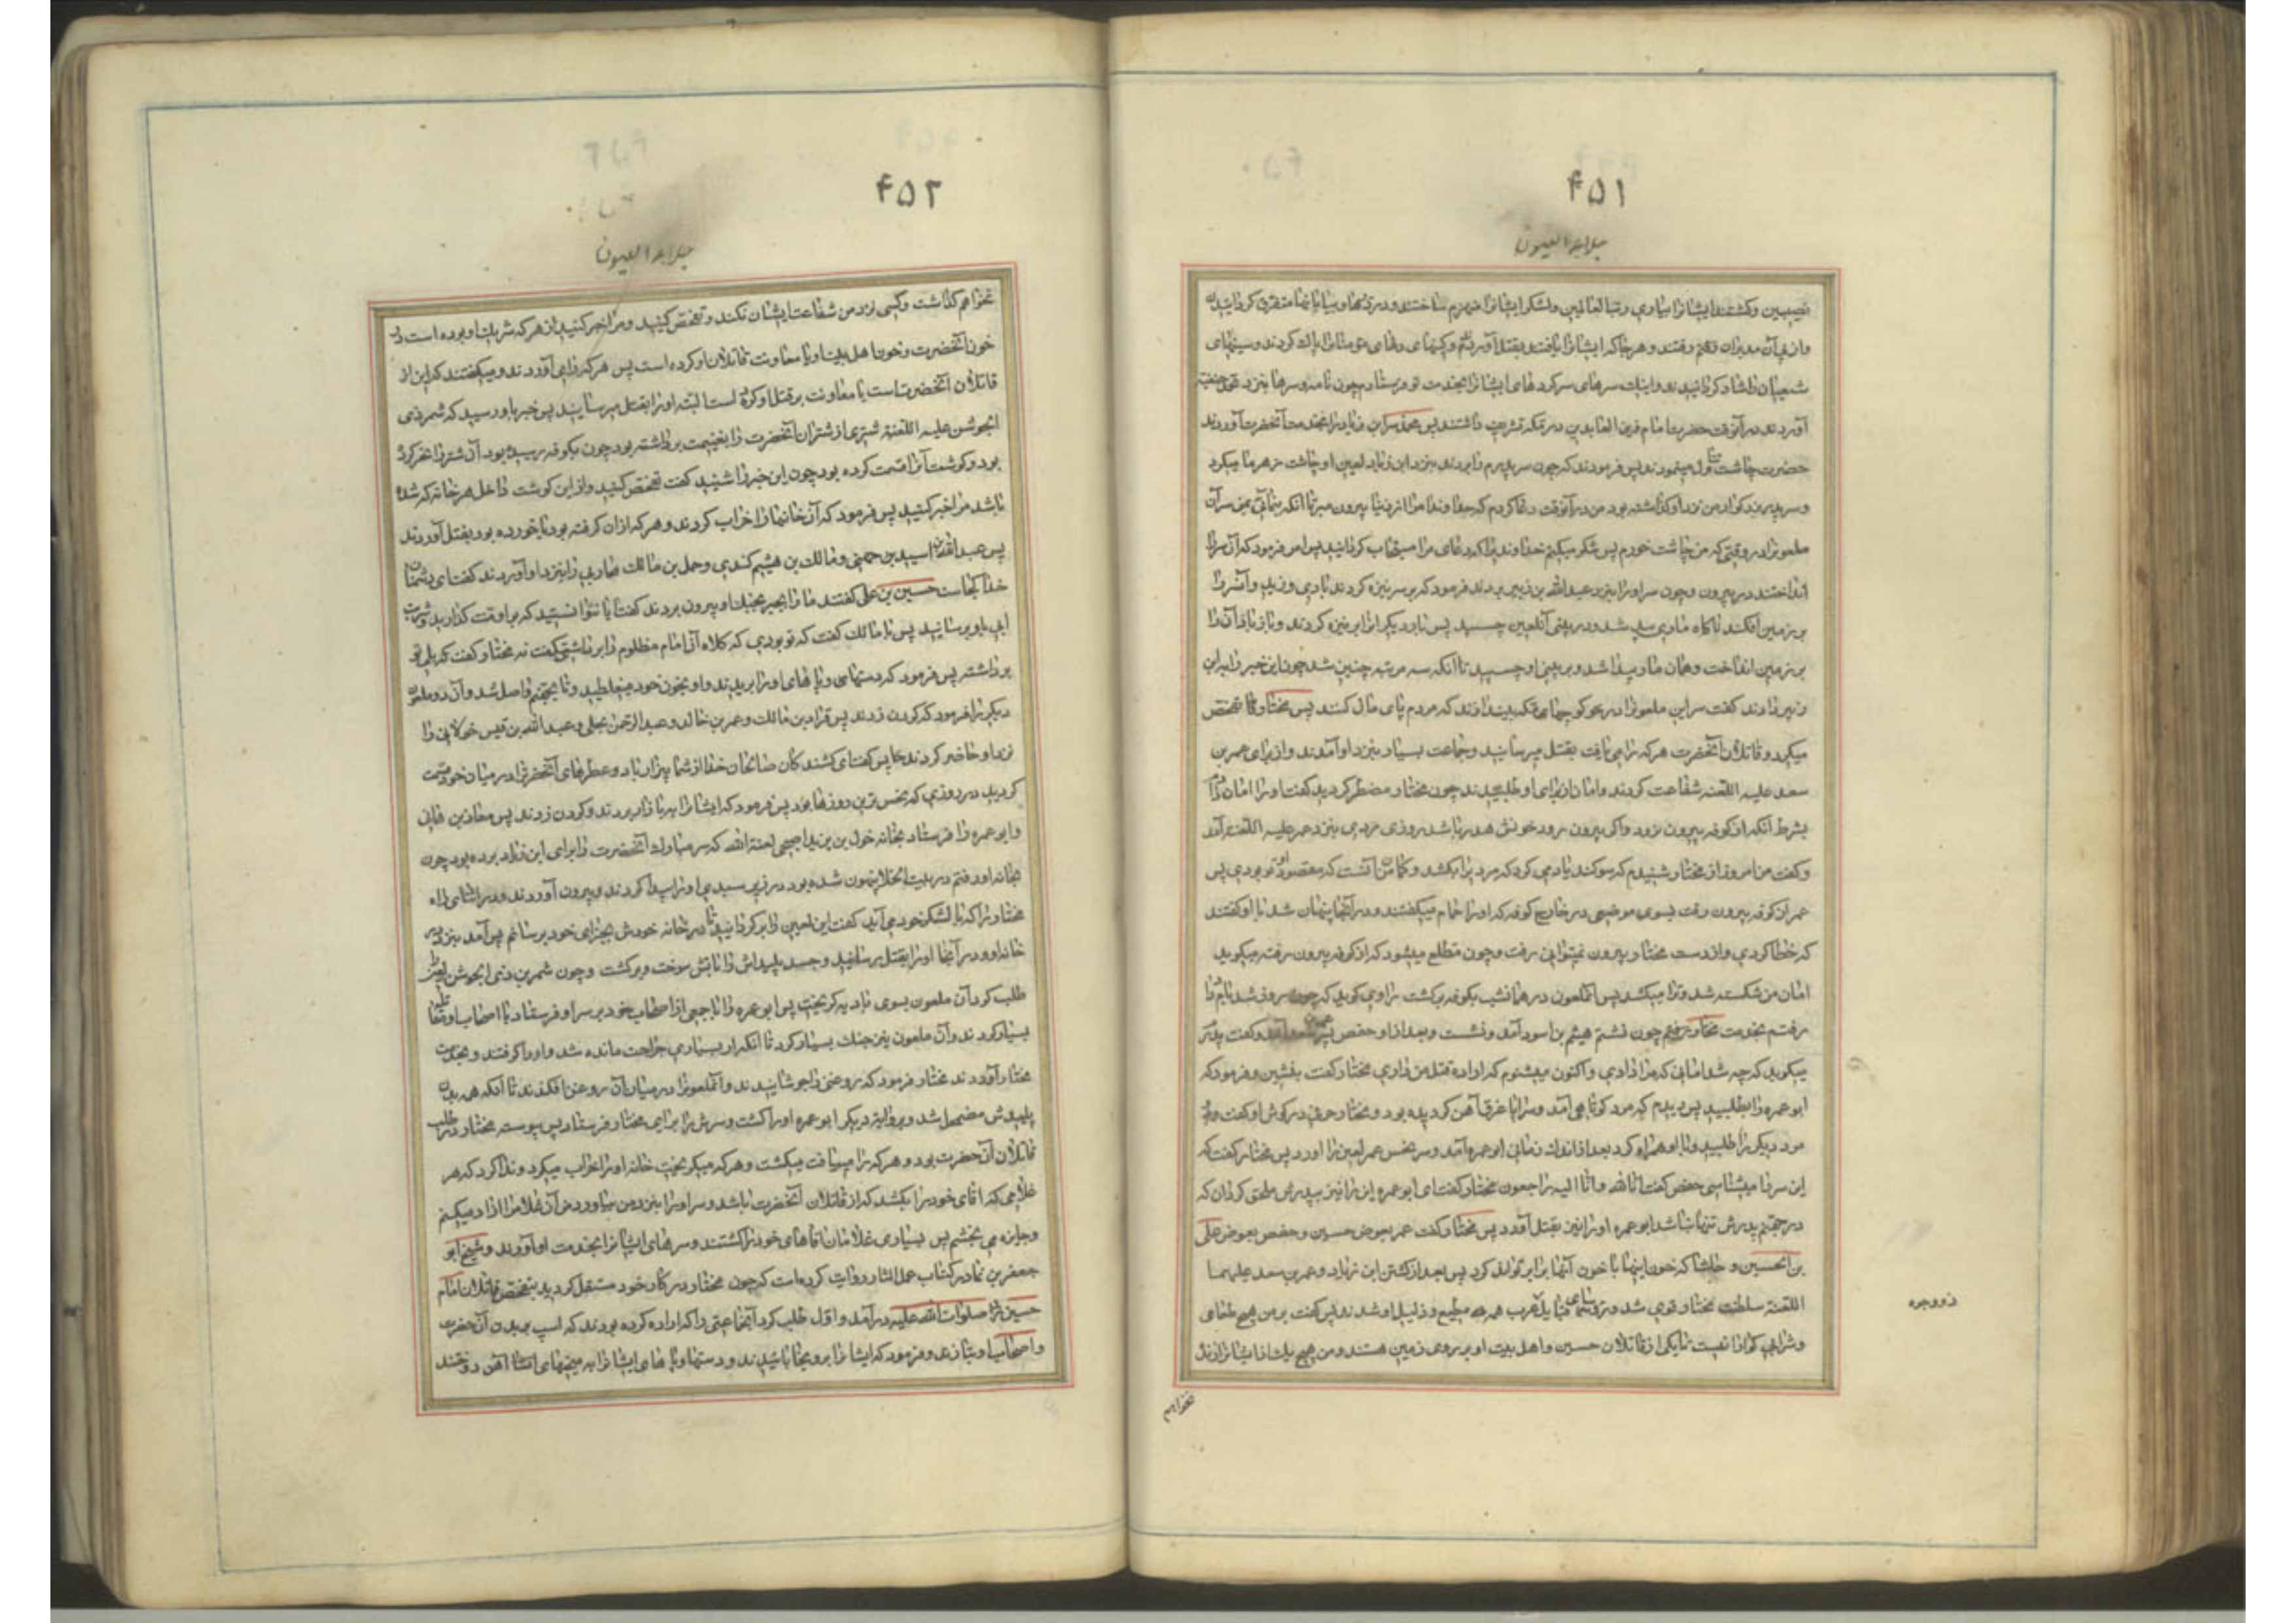 ۴۵۱
جلاء العیون
نصیبین و کشتند ایشانرا بیاری رب العالمین و لشکر ایشانرا منهزم ساختند و در دریاها و بیابانها متفرق گردانیدند
و از پی آن مدبران رفتند و هرجا که ایشانرا یافتند بقتل آوردند و کینهای دلهای مؤمنانرا پاک کردند و سینهای
شیعیان را شاد گردانیدند و اینک سرهای سرکردهای ایشانرا بخدمت تو فرستادم چون نامه و سرها بنزد محمد حنفیه
آوردند در آنوقت حضرت امام زین العابدین در مکه تشریف داشتند پس محمد سر ابن زیاد را بخدمت آنحضرت آوردند
حضرت چاشت تناول مینمودند پس فرمودند که چون سر پدرم را بردند بنزد ابن زیاد لعین او چاشت زهرمار میکرد
و سر پدر بزرگوار من نزد او گذاشته بود من در آنوقت دعا کردم که خداوندا مرا از دنیا بیرون مبر تا آنکه بنمائی بمن سر آن
ملعونرا در وقتی که من چاشت خورم پس شکر میکنم خداوندیرا که دعای مرا مستجاب گردانید پس امر فرمود که آن سر را
انداختند در بیرون و چون سر او را بنزد عبد الله بن زبیر بردند فرمود که بر سر نیزه کردند بادی وزید و آنسر را
بر زمین افکند ناگاه ماری پیدا شد و در بینی آن لعین چسبید پس بار دیگر آنرا بر نیزه کردند و باز باد آن را
بر زمین انداخت و همان مار پیدا شد و بر بینی او چسبید تا آنکه سه مرتبه چنین شد چون این خبر را به ابن
زبیر دادند گفت سر این ملعونرا در کوچهای مکه بیندازند که مردم پای مال کنند پس مختار تفحص
میکرد و قاتلان آنحضرت هرکه را می یافت بقتل میرسانید و جماعت بسیار بنزد او آمدند و از برای عمر بن
سعد علیه اللعنه شفاعت کردند و امان از برای او طلبیدند چون مختار مضطر گردید گفت او را امان دادم
بشرط آنکه از کوفه بیرون نرود و اگر بیرون رود خونش هدر باشد روزی مردی بنزد عمر علیه اللعنه آمد
و گفت من امروز از مختار شنیدم که سوگند یاد می کرد که مردیرا بکشد و گمان من آنست که مقصود او تو بودی پس
عمر از کوفه بیرون رفت بسوی موضعی در خارج کوفه که او را حمام میگفتند و در آنجا پنهان شد باو گفتند
که خطا کردی و از دست مختار بیرون نمیتوانی رفت و چون مطلع میشود که از کوفه بیرون رفته میگوید
امان من شکسته شد و ترا میکشد پس آنملعون در همانشب بکوفه برگشت راوی گوید که چون روز شد بامداد
رفتم بخدمت مختار رفتم چون نشستم هیثم بن اسود آمد و نشست و بعد از او حفص پسر عمر سعد آمد و گفت پدرم
میگوید که چه شد امانی که مرا دادی و اکنون میشنوم که اراده قتل من داری مختار گفت بنشین و فرمود که
ابو عمره را بطلبید پس دیدم که مرد کوتاهی آمد و سراپا غرق آهن گردیده بود و مختار حرفی در گوش او گفت و دو
مرد دیگر را طلبید و با او همراه کرد بعد از اندک زمانی ابو عمره آمد و سر نحس عمر لعین را آورد پس مختار گفت که
این سر را میشناسی حفص گفت انا لله و انا الیه راجعون مختار گفت ای ابو عمره این را نیز بپدرش ملحق گردان که
در جهنم پدرش تنها نباشد ابو عمره او را نیز بقتل آورد پس مختار گفت عمر بعوض حسین و حفص بعوض علی
بن الحسین و حاشا که خون اینها با خون آنها برابر تواند کرد پس بعد از کشتن ابن زیاد و عمر بن سعد علیهما
اللعنه سلطنت مختار قوی شد و رؤسای قبایل عرب همه مطیع و ذلیل او شدند پس گفت بر من هیچ طعامی
و شرابی گوارا نیست تا یکی از قاتلان حسین و اهل بیت او بر روی زمین هستند و من هیچ یک از ایشانرا زنده
نخواهم
ذووجره
۴۵۲
جلاء العیون
نخواهم گذاشت و کسی نزد من شفاعت ایشان نکند و تفحص کنید و مرا خبر کنید از هر که شریک او بوده است در
خون آنحضرت و خون اهل بیت او یا معاونت قاتلان او کرده است پس هر که را می آوردند و میگفتند که این از
قاتلان آنحضرت است یا معاونت بر قتل او کرده است البته او را بقتل میرسانید پس خبر باو رسید که شمر ذی
الجوشن علیه اللعنة شتری از شتران آنحضرت را بغنیمت برداشته بود چون بکوفه رسیده بود آن شتر را نحر کرده
بود و گوشت آنرا قسمت کرده بود چون این خبر را شنید گفت تفحص کنید و از این گوشت داخل هر خانه که شده
باشد مرا خبر کنید پس فرمود که آن خانها را خراب کردند و هر که از آن گرفته بود یا خورده بود بقتل آوردند
پس عبد الله بن اسید جهنی و مالک بن هیثم کندی و حمل بن مالک محاربی را بنزد او آوردند گفت ای دشمنان
خدا کجاست حسین بن علی گفتند ما را بجبر بجنگ او بیرون بردند گفت آیا نتوانستید که بر او منت گذارید و شربت
آبی باو برسانید پس با مالک گفت که تو بودی که کلاه آن امام مظلوم را برداشتی گفت نه مختار گفت که بلی تو
برداشته پس فرمود که دستهای و پاهای او را بریدند و او بخون خود میغلطید تا بجهنم واصل شد و آن دو ملعون
دیگر را فرمود که گردن زدند پس قراد بن مالک و عمر بن خالد و عبد الرحمن بجلی و عبد الله بن قیس خولانی را
نزد او حاضر کردند پس گفت ای کشندگان صالحان خدا از شما بیزار باد و عطرهای آنحضرترا در میان خود قسمت
کردید در روزی که نحس ترین روزها بود پس فرمود که ایشانرا ببازار بردند و گردن زدند پس معاذ بن هانی
و ابو عمره را فرستاد بخانه خولی بن یزید اصبحی لعنة الله که سر مبارک آنحضرت را برای ابن زیاد برده بود چون
بخانه او رفتند در بیت الخلا پنهون شده بود در زیر سبدی او را پیدا کردند و بیرون آوردند و در اثنای راه
مختار را که با لشکر خود می آید گفت این لعین را برگردانید تا در خانه خودش بجزای خود برسانم پس آمد بنزد در
خانه او و در آنجا او را بقتل رسانید و جسد پلیدش را بآتش سوخت و برگشت و چون شمر بن ذی الجوشن لعین را
طلب کرد آن ملعون بسوی بادیه گریخت پس ابو عمره را با جمعی از اصحاب خود بر سر او فرستاد با اصحاب او مقاتله
بسیار کردند و آن ملعون نیز جنگ بسیار کرد تا آنکه از بسیاری جراحت مانده شد و او را گرفتند و بخدمت
مختار آوردند مختار فرمود که روغنی را جوشانیدند و آنملعونرا در میان آن روغن افکندند تا آنکه همه بدن
پلیدش مضمحل شد و بروایت دیگر ابو عمره او را کشت و سرش را برای مختار فرستاد پس پیوسته مختار در طلب
قاتلان آن حضرت بود و هر که را می‌یافت میکشت و هر که میگریخت خانه او را خراب میکرد و ندا کرد که هر
غلامی که آقای خود را بکشد که از قاتلان آنحضرت باشد و سر او را بنزد من بیاورد من آن غلام را آزاد میکنم
و جایزه می بخشم پس بسیاری غلامان آقاهای خود را کشتند و سرهای ایشانرا بخدمت او آوردند و شیخ ابو
جعفر بن نما در کتاب عمل الثار روایت کرده است که چون مختار در کار خود مستقل گردید بتفحص قاتلان امام
حسین صلوات الله علیه در آمد و اول طلب کرد آنجماعتی را که اراده کرده بودند که اسب بر بدن آن حضرت
و اصحاب او بتازند و فرمود که ایشانرا برو خوابانیدند و دستها و پاهای ایشانرا به میخهای آهن دوختند